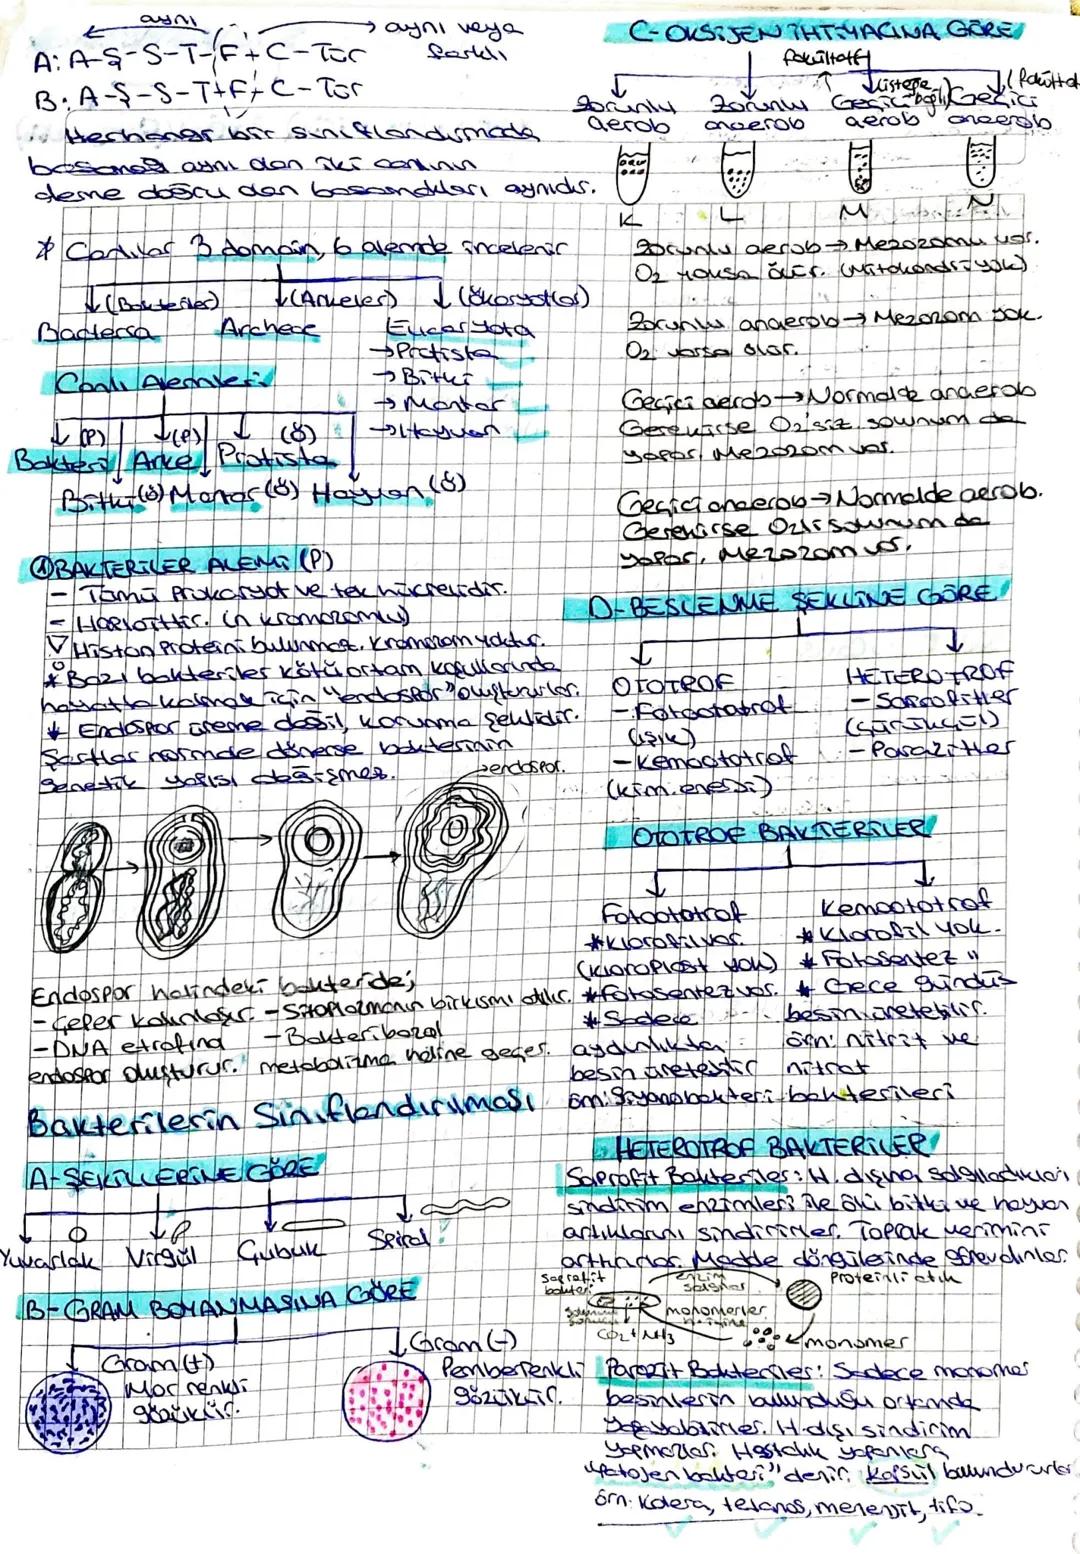 aynı
aynı veya
farklı
A: A-Ş-S-T-F+C-Tür
B: A-Ş-S-T+F+C-Tür
Herhangi bir sınıflandırmada
basamağı aynı olan iki canlının
aleme doğru olan basamakları aynıdır.
* Canlılar 3 domain, 6 alemde incelenir
(Bakteriler) (Arkeler) (Ökaryotlar)
Bacteria Archeae Eucaryota
→Protista
→Bitki
→Mantar
→Hayvan
Canlı Alemleri:
(P) (P) (Ö)
Bakteri Arke Protista
Bitki(ö) Mantar(ö) Hayvan(ö)
①BAKTERİLER ALEMİ (P)
- Tümü Prokaryot ve tek hücrelidir.
- Haploittir. (n kromozomlu)
Histon Proteini bulunmaz. Kromozom yoktur.
* Bazı bakteriler kötü ortam koşullarında
hayatta kalmak için "endospor" oluştururlar.
* Endospor üreme değil, korunma şeklidir.
Şartlar normale dönerse bakterinin
genetik yapısı değişmez.
→endospor.
Endospor halindeki bakteride;
- Çeper kalınlaşır. - Sitoplazmanın bir kısmı atılır.
- DNA etrafına - Bakteri bazal
endospor oluşturur. metabolizma haline geçer.
Bakterilerin Sınıflandırılması
A-ŞEKİLLERİNE GÖRE
Yuvarlak Virgül Çubuk Spiral
B-GRAM BOYANMASINA GÖRE
Gram(+)
Mor renkli
gözükür.
Gram(-)
Pembe renkli
gözükür.
C-OKSİJEN İHTİYACINA GÖRE
fakültatif
(isteğe bağlı)
Zorunlu Zorunlu Geçici Geçici
aerob anaerob aerob anaerob
K L M N
Zorunlu aerob→Mezozomu var.
O2 yoksa ölür. (Mitokondri yok)
Zorunlu anaerob→Mezozom yok.
O2 varsa ölür.
Geçici aerob→Normalde anaerob
Gerekirse O2'siz solunum da
yapar. Mezozom var.
Geçici anaerob→Normalde aerob.
Gerekirse O2li solunum da
yapar. Mezozom var.
D-BESLENME ŞEKLİNE GÖRE
OTOTROF
- Fotoototrof
(ışık)
- Kemoototrof
(kim. enerji)
HETEROTROF
- Saprofitler
(çürükçül)
- Parazitler
OTOTROF BAKTERİLER
Fotoototrof
*Klorofil var.
(kloroplast yok)
*Fotosentez var.
*Sadece
aydınlıkta
besin üretebilir
örn: Siyanobakteri
Kemoototrof
*Klorofil yok.
*Fotosentez "
*Gece gündüz
besin üretebilir.
örn: nitrit ve
nitrat
bakterileri
HETEROTROF BAKTERİLER
Saprofit Bakteriler: H. dışına salgıladıkları
sindirim enzimleri ile ölü bitki ve hayvan
artıklarını sindirirler. Toprak verimini
arttırırlar. Madde döngülerinde görevdirler.
saprofit
bakteri
enzim
salgılar
Proteinli atık
monomerler
CO2+NH3
monomer
Parazit Bakteriler: Sadece monomer
besinlerin bulunduğu ortamda
yaşayabilirler. H. dışı sindirim
yapmazlar. Hastalık yapanlara
"patojen bakteri" denir. Kapsül bulundururlar
örn: Kolera, tetanos, menenjit, tifo.